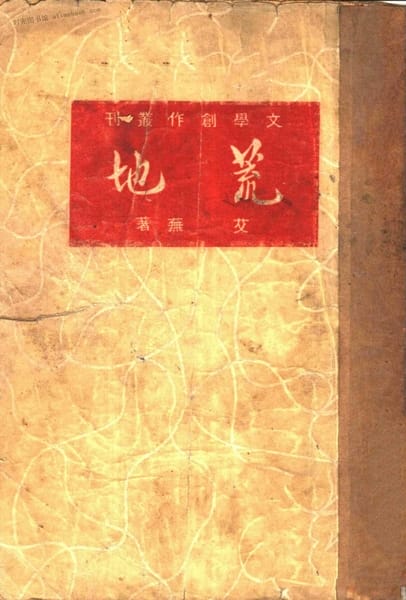 文學創作叢刊
荒地
艾蕪著